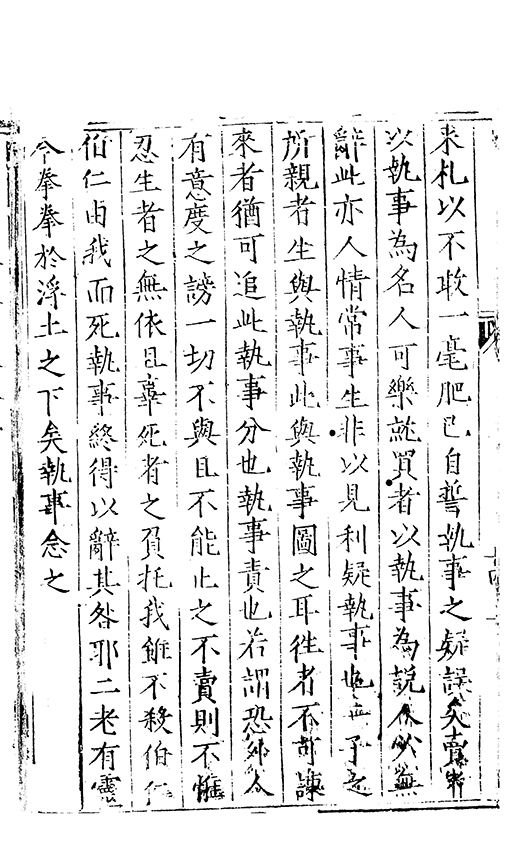 来札以不敢一毫肥已自誓執事之疑誤矣賣
以執事為名人可樂就買者以執事為說人以無
辭此亦人情常事生非以見利疑執事也予之
所親者生與執事此與執事圖之耳徃者不可諫
來者猶可追此執事分也執事責也若謂恐外人
有意度之謗一切不與且不能止之不賣則不惟
忍生者之無依且辜死者之負托我雖不殺伯仁
伯仁由我而死執事終得以辭其咎耶二老有靈
今拳拳於浮土之下矣執事念之